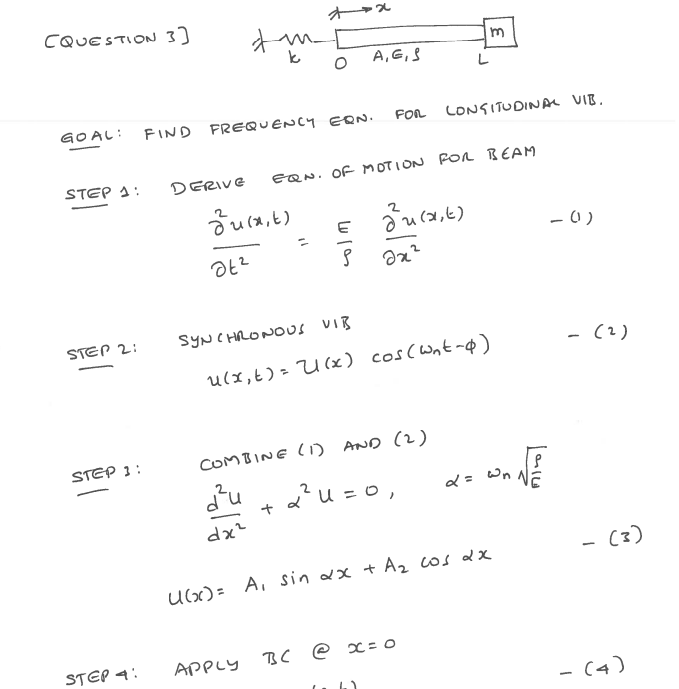 [QUESTION 3]
x
k
O
A, E, ρ
L
m
GOAL: FIND FREQUENCY EQN. FOR LONGITUDINAL VIB.
STEP 1: DERIVE EQN. OF MOTION FOR BEAM
∂²u(x,t)/∂t² = E/ρ ∂²u(x,t)/∂x² - (1)
STEP 2: SYNCHRONOUS VIB
u(x,t) = U(x) cos(ωnt-φ) - (2)
STEP 3: COMBINE (1) AND (2)
d²U/dx² + α²U = 0, α = ωn √ρ/E
U(x) = A₁ sin αx + A₂ cos αx - (3)
STEP 4: APPLY BC @ x=0 - (4)